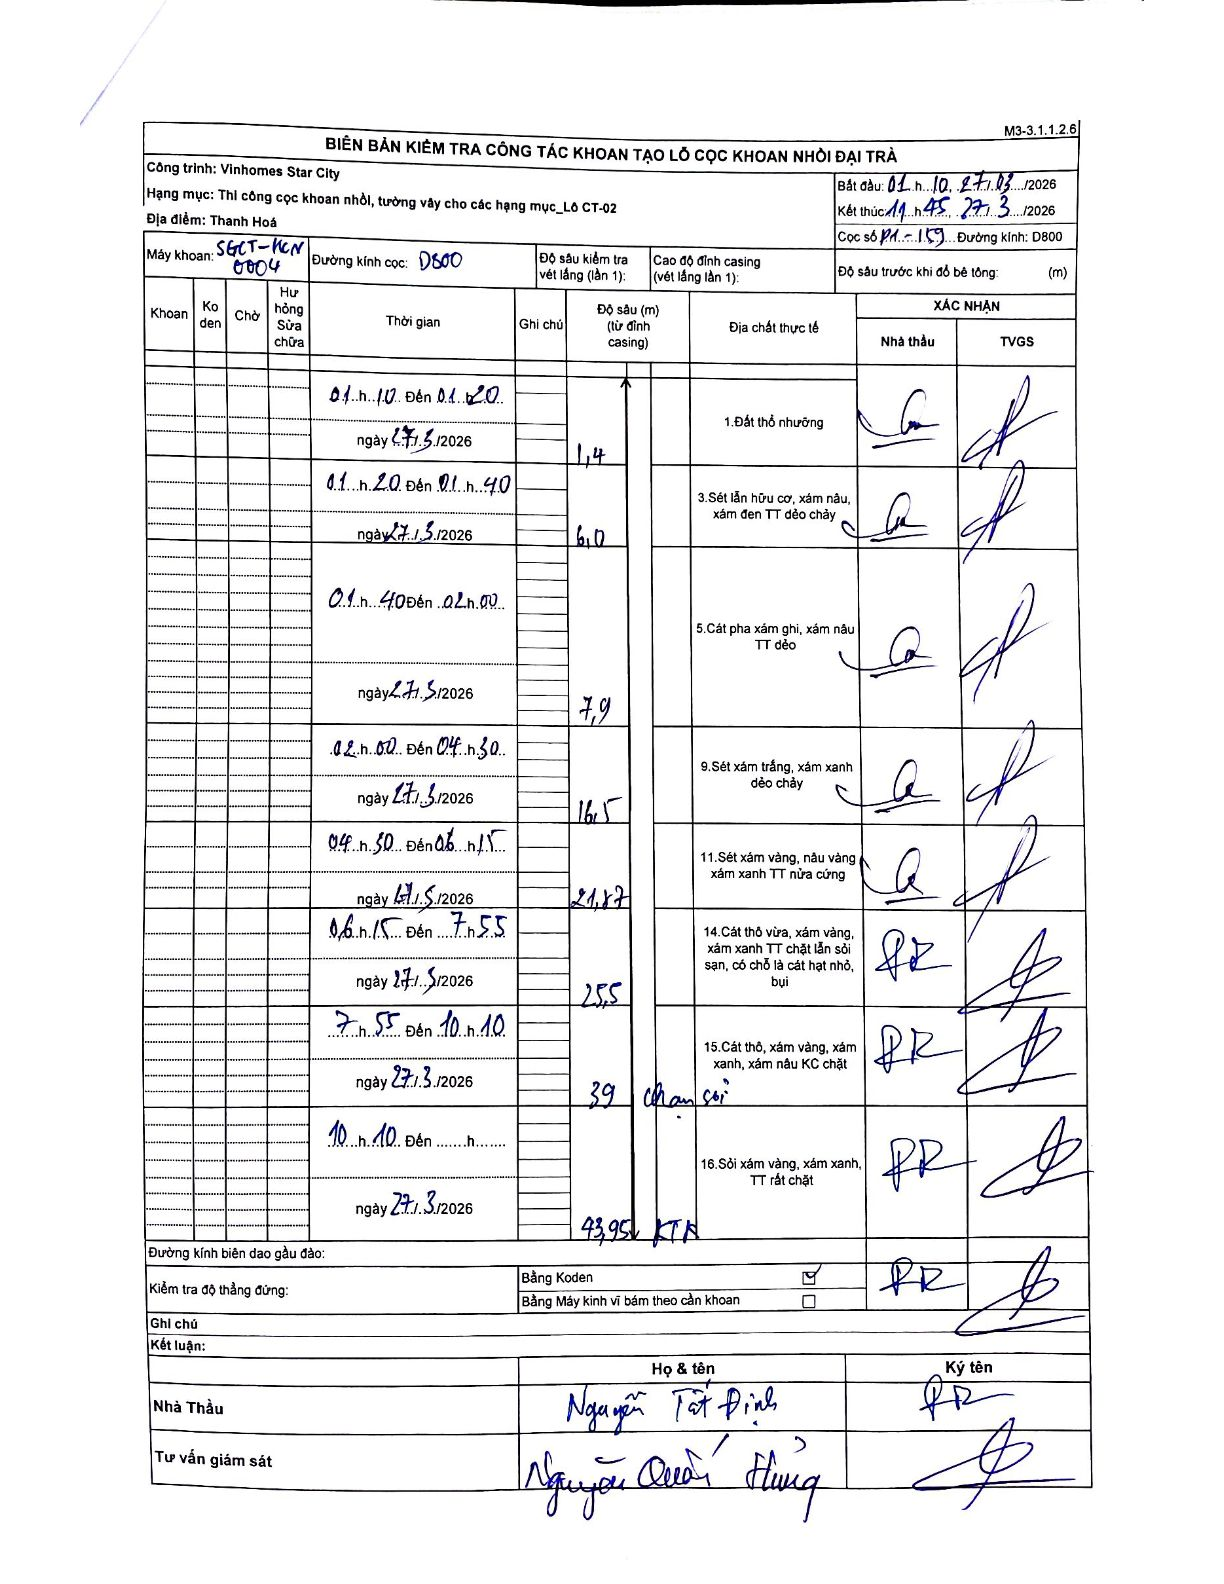 M3-3.1.1.2.6
BIÊN BẢN KIỂM TRA CÔNG TÁC KHOAN TẠO LỖ CỌC KHOAN NHỒI ĐẠI TRÀ
Công trình: Vinhomes Star City
Hạng mục: Thi công cọc khoan nhồi, tường vây cho các hạng mục_Lô CT-02
Địa điểm: Thanh Hoá
Bắt đầu: 01.h..10, 27/.03../2026
Kết thúc: 11.h.45, 27/.3.../2026
Cọc số P1.-159 Đường kính: D800
Máy khoan: SGCT-KCN 0004
Đường kính cọc: D800
Độ sâu kiểm tra vét lắng (lần 1):
Cao độ đỉnh casing (vét lắng lần 1):
Độ sâu trước khi đổ bê tông: (m)
Khoan
Ko den
Chờ
Hư hỏng Sửa chữa
Thời gian
Ghi chú
Độ sâu (m) (từ đỉnh casing)
Địa chất thực tế
XÁC NHẬN
Nhà thầu
TVGS
01..h..10.. Đến 01..h20..
ngày 27./.3./2026
1,4
1.Đất thổ nhưỡng
01...h.20. Đến 01.h..40
ngày 27./.3./2026
6,0
3.Sét lẫn hữu cơ, xám nâu,
xám đen TT dẻo chảy
01.h...40 Đến ..02h.00..
ngày 27./.3./2026
7,9
5.Cát pha xám ghi, xám nâu
TT dẻo
.02..h..00.. Đến 04..h.30..
ngày 27./.3./2026
16,5
9.Sét xám trắng, xám xanh
dẻo chảy
04..h.30... Đến 06...h.15..
ngày 27./.3./2026
21,87
11.Sét xám vàng, nâu vàng
xám xanh TT nửa cứng
06.h.15... Đến ....7.h55
ngày 27./.3/2026
25,5
14.Cát thô vừa, xám vàng,
xám xanh TT chặt lẫn sỏi
sạn, có chỗ là cát hạt nhỏ,
bụi
...7..h..55.... Đến .10.h.10.
ngày 27./.3./2026
39 chạm sỏi
15.Cát thô, xám vàng, xám
xanh, xám nâu KC chặt
10...h..10.. Đến .......h.......
ngày 27./.3/2026
43,95 KTK
16.Sỏi xám vàng, xám xanh,
TT rất chặt
Đường kính biên dao gầu đào:
Kiểm tra độ thẳng đứng:
Bằng Koden ☑
Bằng Máy kinh vĩ bám theo cần khoan ☐
Ghi chú
Kết luận:
Họ & tên
Ký tên
Nhà Thầu
Nguyễn Tất Định
Tư vấn giám sát
Nguyễn Quốc Hưng